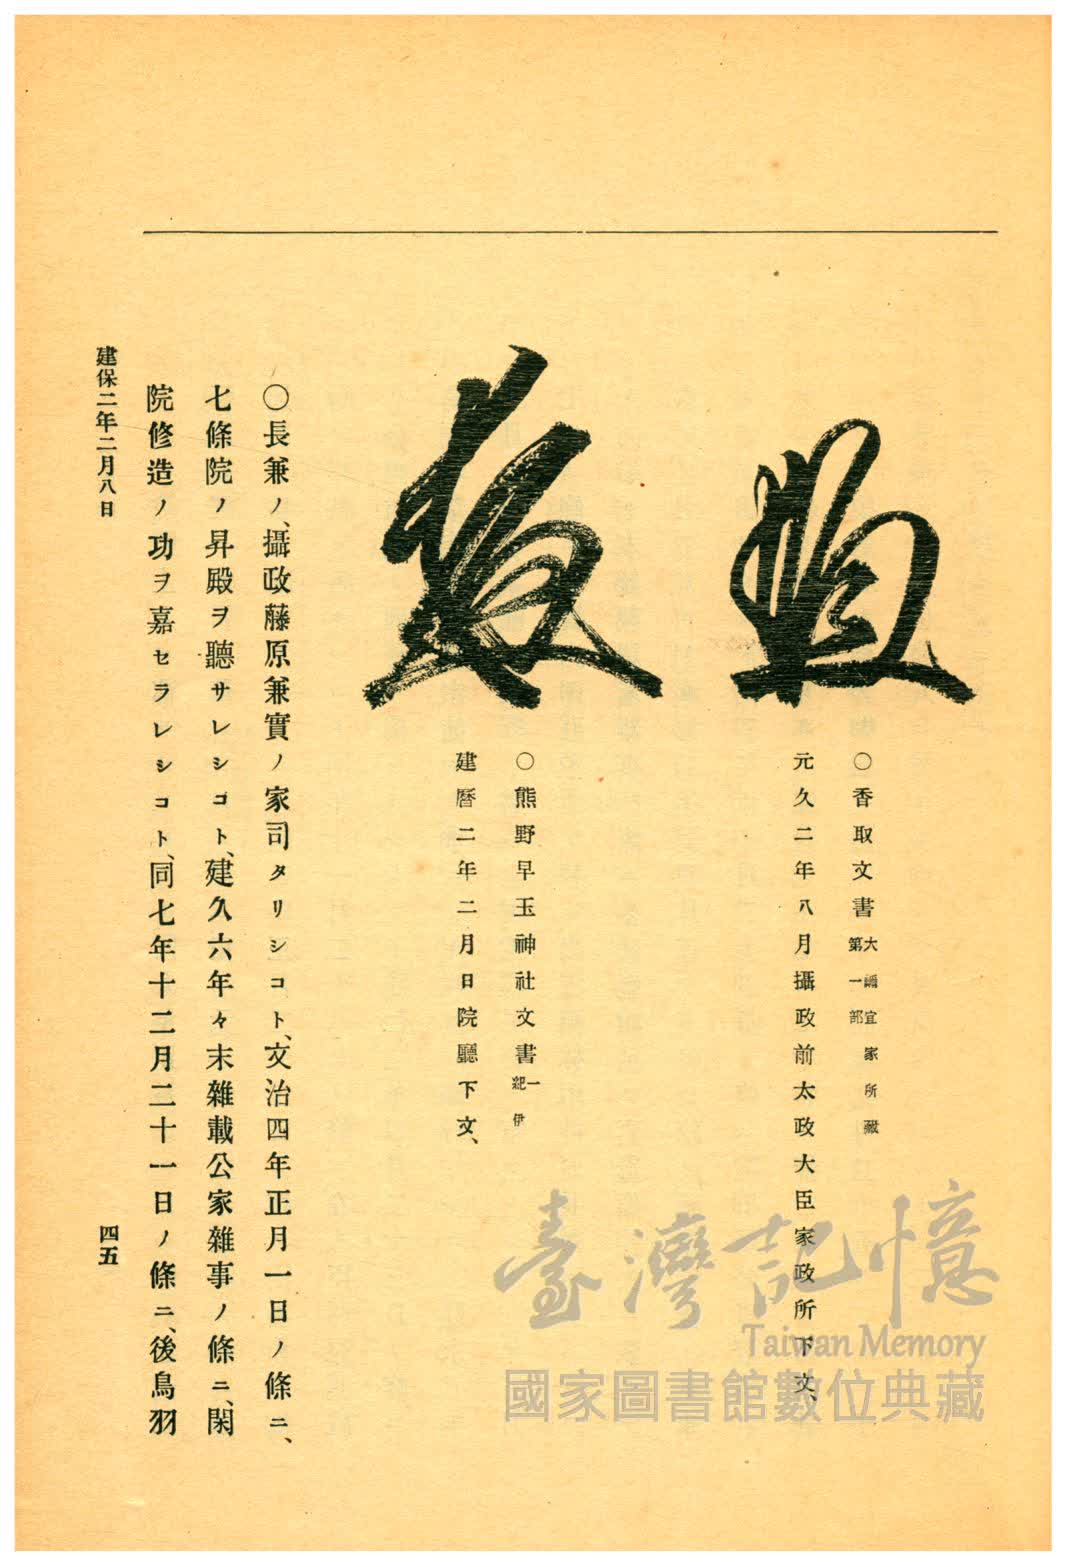 〇香取文書 大禰宜家所藏
第一部
元久二年八月攝政前太政大臣家政所下文、
〇熊野早玉神社文書 一
紀伊
建曆二年二月日院廳下文、
〇長兼ノ、攝政藤原兼實ノ家司タリシコト、文治四年正月一日ノ條ニ、
七條院ノ昇殿ヲ聽サレシコト、建久六年々末雜載公家雜事ノ條ニ、閑
院修造ノ功ヲ嘉セラレシコト、同七年十二月二十一日ノ條ニ、後鳥羽
建保二年二月八日
四五
臺灣記憶
Taiwan Memory
國家圖書館數位典藏